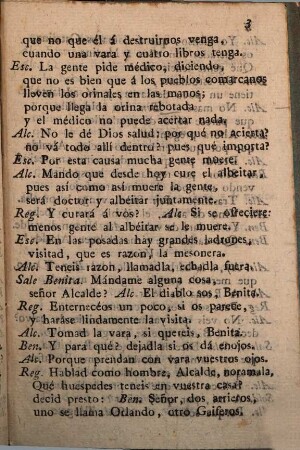 3
que no que él á destruirnos venga,
cuando una vara y cuatro libros tenga.
Esc. La gente pide médico, diciendo,
que no es bien que á los pueblos comarcanos
lleven los orinales en las manos;
porque llega la orina rebotada
y el médico no puede acertar nada.
Alc. No le dé Dios salud: por qué no acierta?
no vá todo allí dentro? pues qué importa?
Esc. Por esta causa mucha gente muere.
Alc. Mando que desde hoy cure el albéitar,
pues así como así muere la gente,
será doctor y albéitar juntamente.
Reg. Y curará á vos? Alc. Si se ofreciere:
menos gente al albéitar se le muere.
Esc. En las posadas hay grandes ladrones,
visitad, que es razon, la mesonera.
Alc. Teneis razon, llamadla, echadla fuera.
Sale Benita. Mándame alguna cosa,
señor Alcalde? Alc. El diablo sos, Benita.
Reg. Enterneceos un poco, si os parece,
y haráse lindamente la visita.
Alc. Tomad la vara, si quereis, Benita.
Ben. Y para qué? dejadla si os dá enojos.
Alc. Porque prendan con vara vuestros ojos.
Reg. Hablad como hombre, Alcalde, noramala,
Qué huespedes teneis en vuestra casa?
decid presto: Ben. Señor, dos arrieros,
uno se llama Orlando, otro Gaiferos,